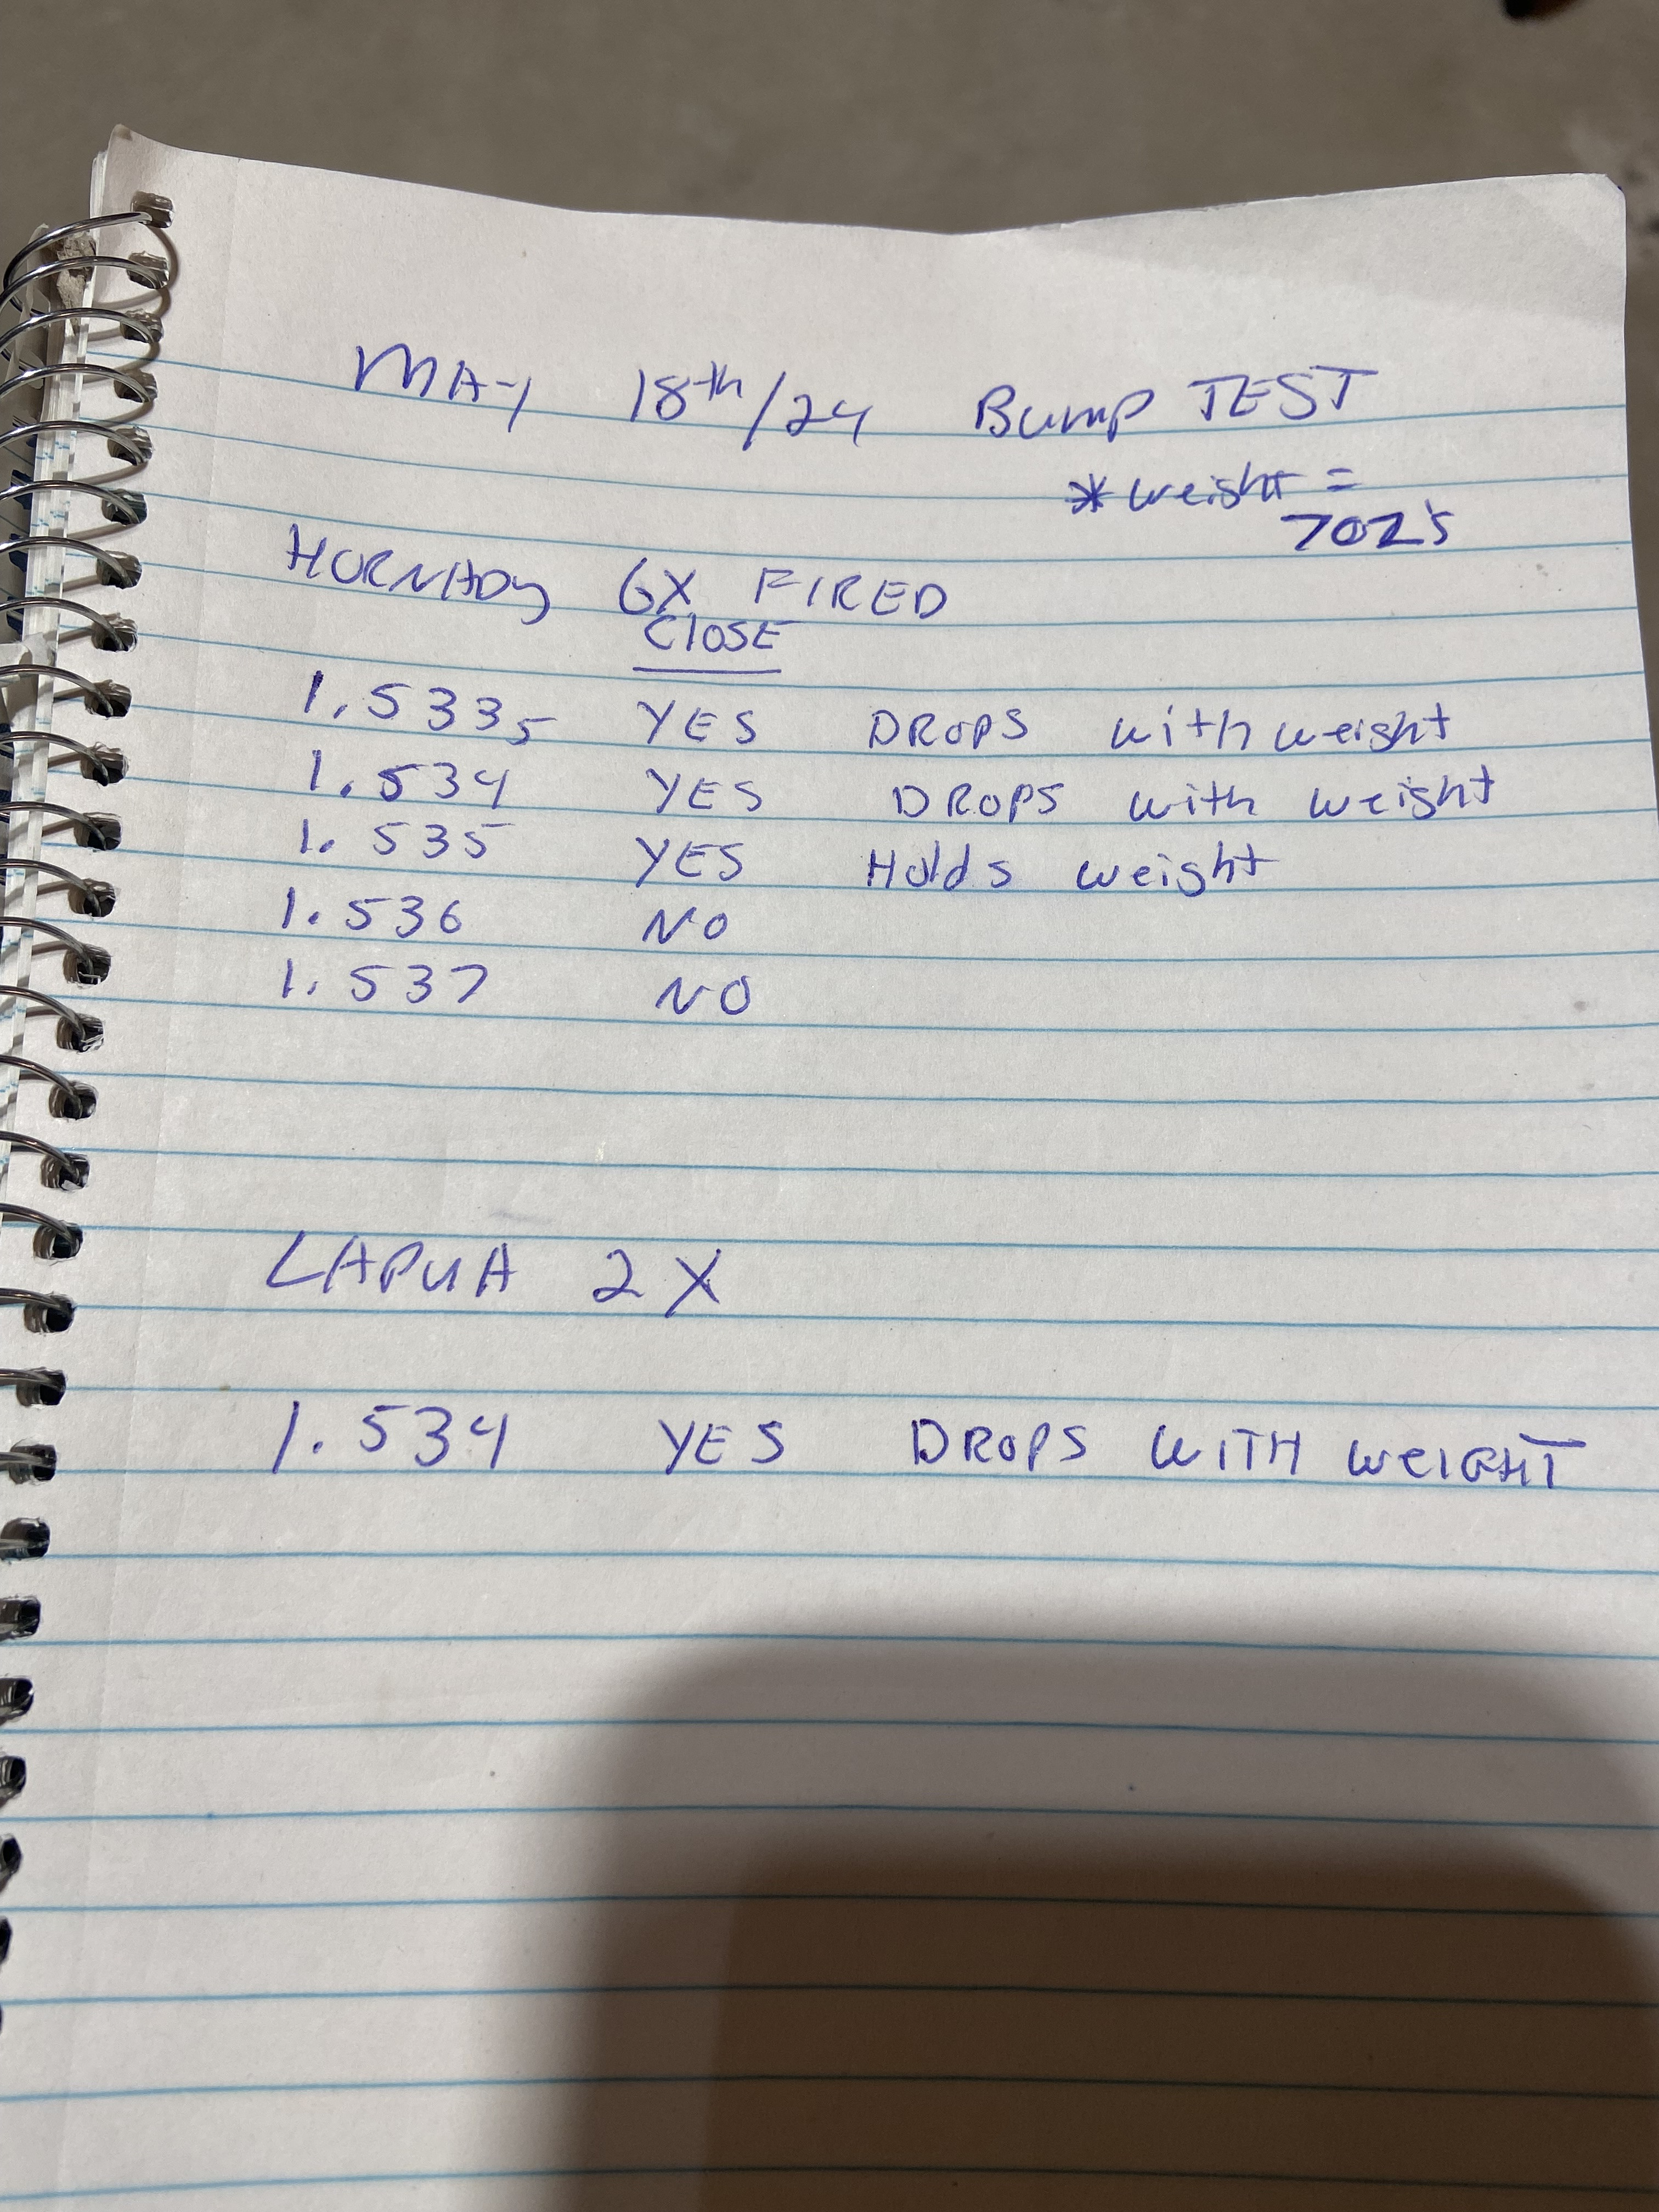 MAY 18th/24 Bump TEST
* weight =
7oz's
HORNADy 6X FIRED
CLOSE
1.5335 YES DROPS with weight
1.534 YES DROPS with weight
1.535 YES Holds weight
1.536 NO
1.537 NO
LAPUA 2X
1.534 YES DROPS WITH WEIGHT